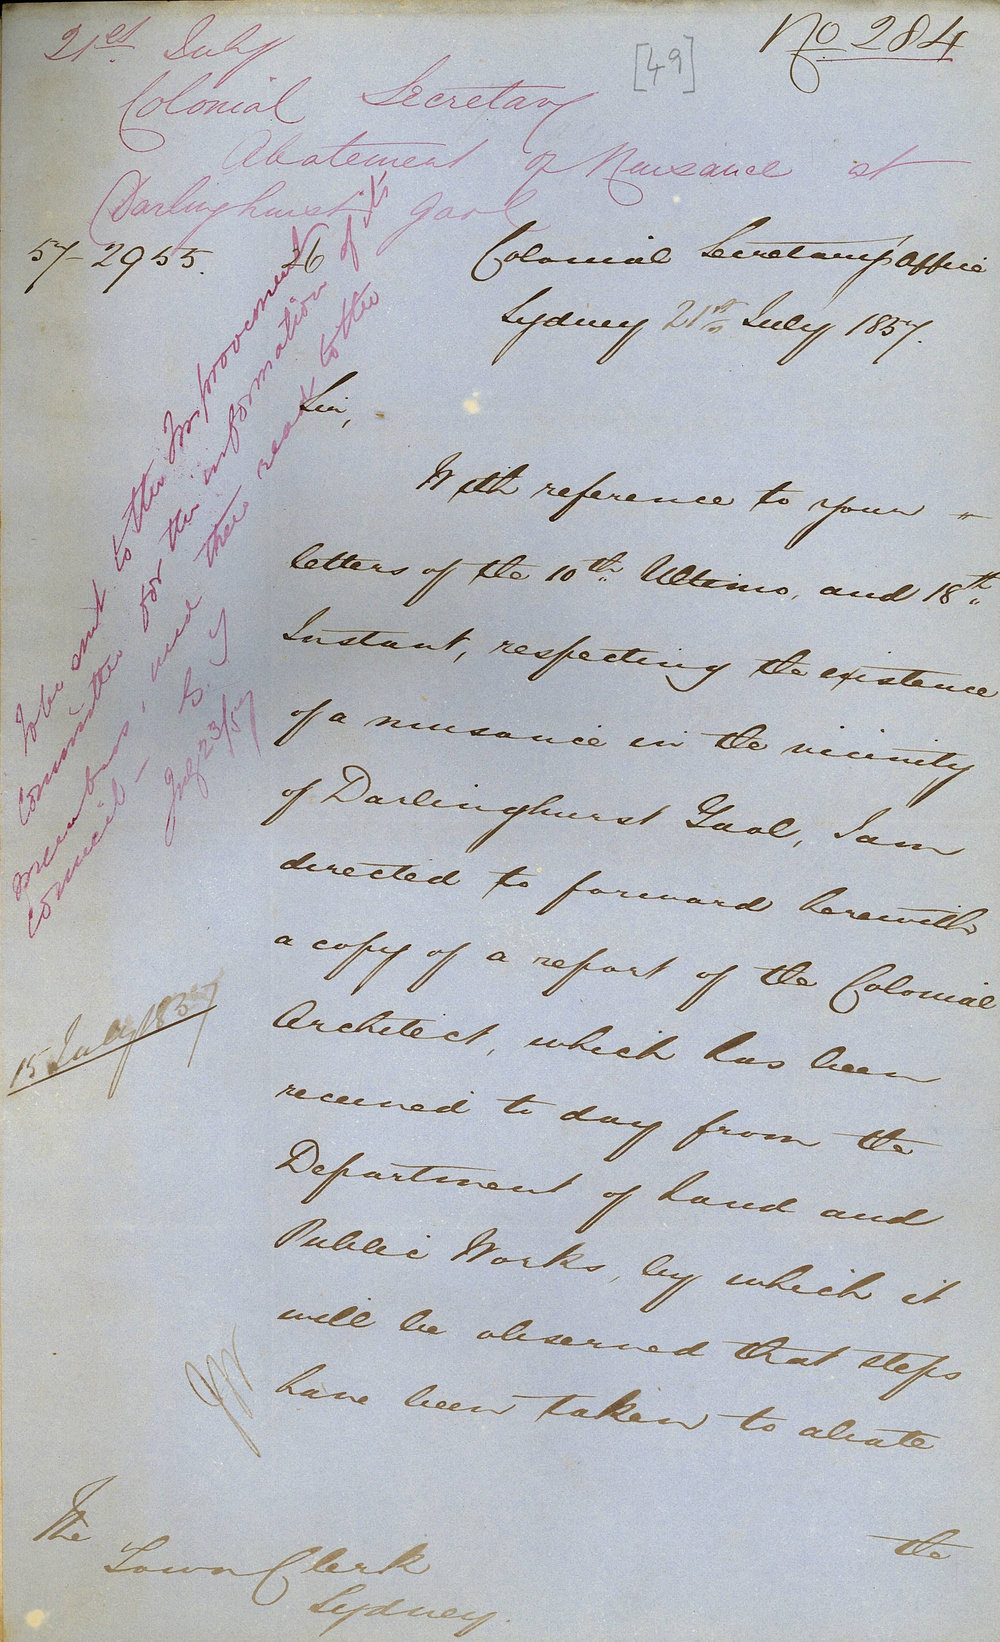 No 284
[49]
21st July
Colonial Secretary
Abatement of Nuisance at
Darlinghurst Gaol
57-2955. 36
Colonial Secretary's Office
Sydney 21st July 1857.
To be sent to the Improvement
Committee for the information of its
members, and then read to the
Council -
July 23/57
Sir,
With reference to your
letters of the 10th Ultimo, and 18th
Instant, respecting the existence
of a nuisance in the vicinity
of Darlinghurst Gaol, I am
directed to forward herewith
a copy of a report of the Colonial
Architect, which has been
15 July 1857
received to day from the
Department of Land and
Public Works, by which it
will be observed that steps
have been taken to abate
the
The
Town Clerk
Sydney.